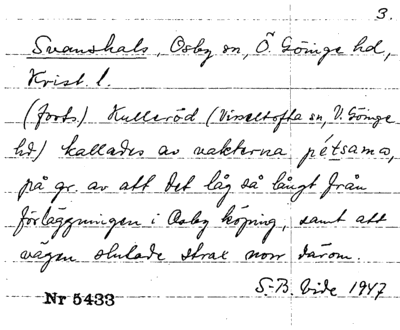 3.
Svanshals, Osby sn, Ö. Göinge hd,
Krist. l.
(forts.) Kulleröd (Visseltofta sn, V. Göinge
hd) kallades av vakterna pétsamo,
på gr. av att det låg så långt från
förläggningen i Osby köping, samt att
vägen slutade strax norr därom.
S.-B. Vide 1947
Nr 5433